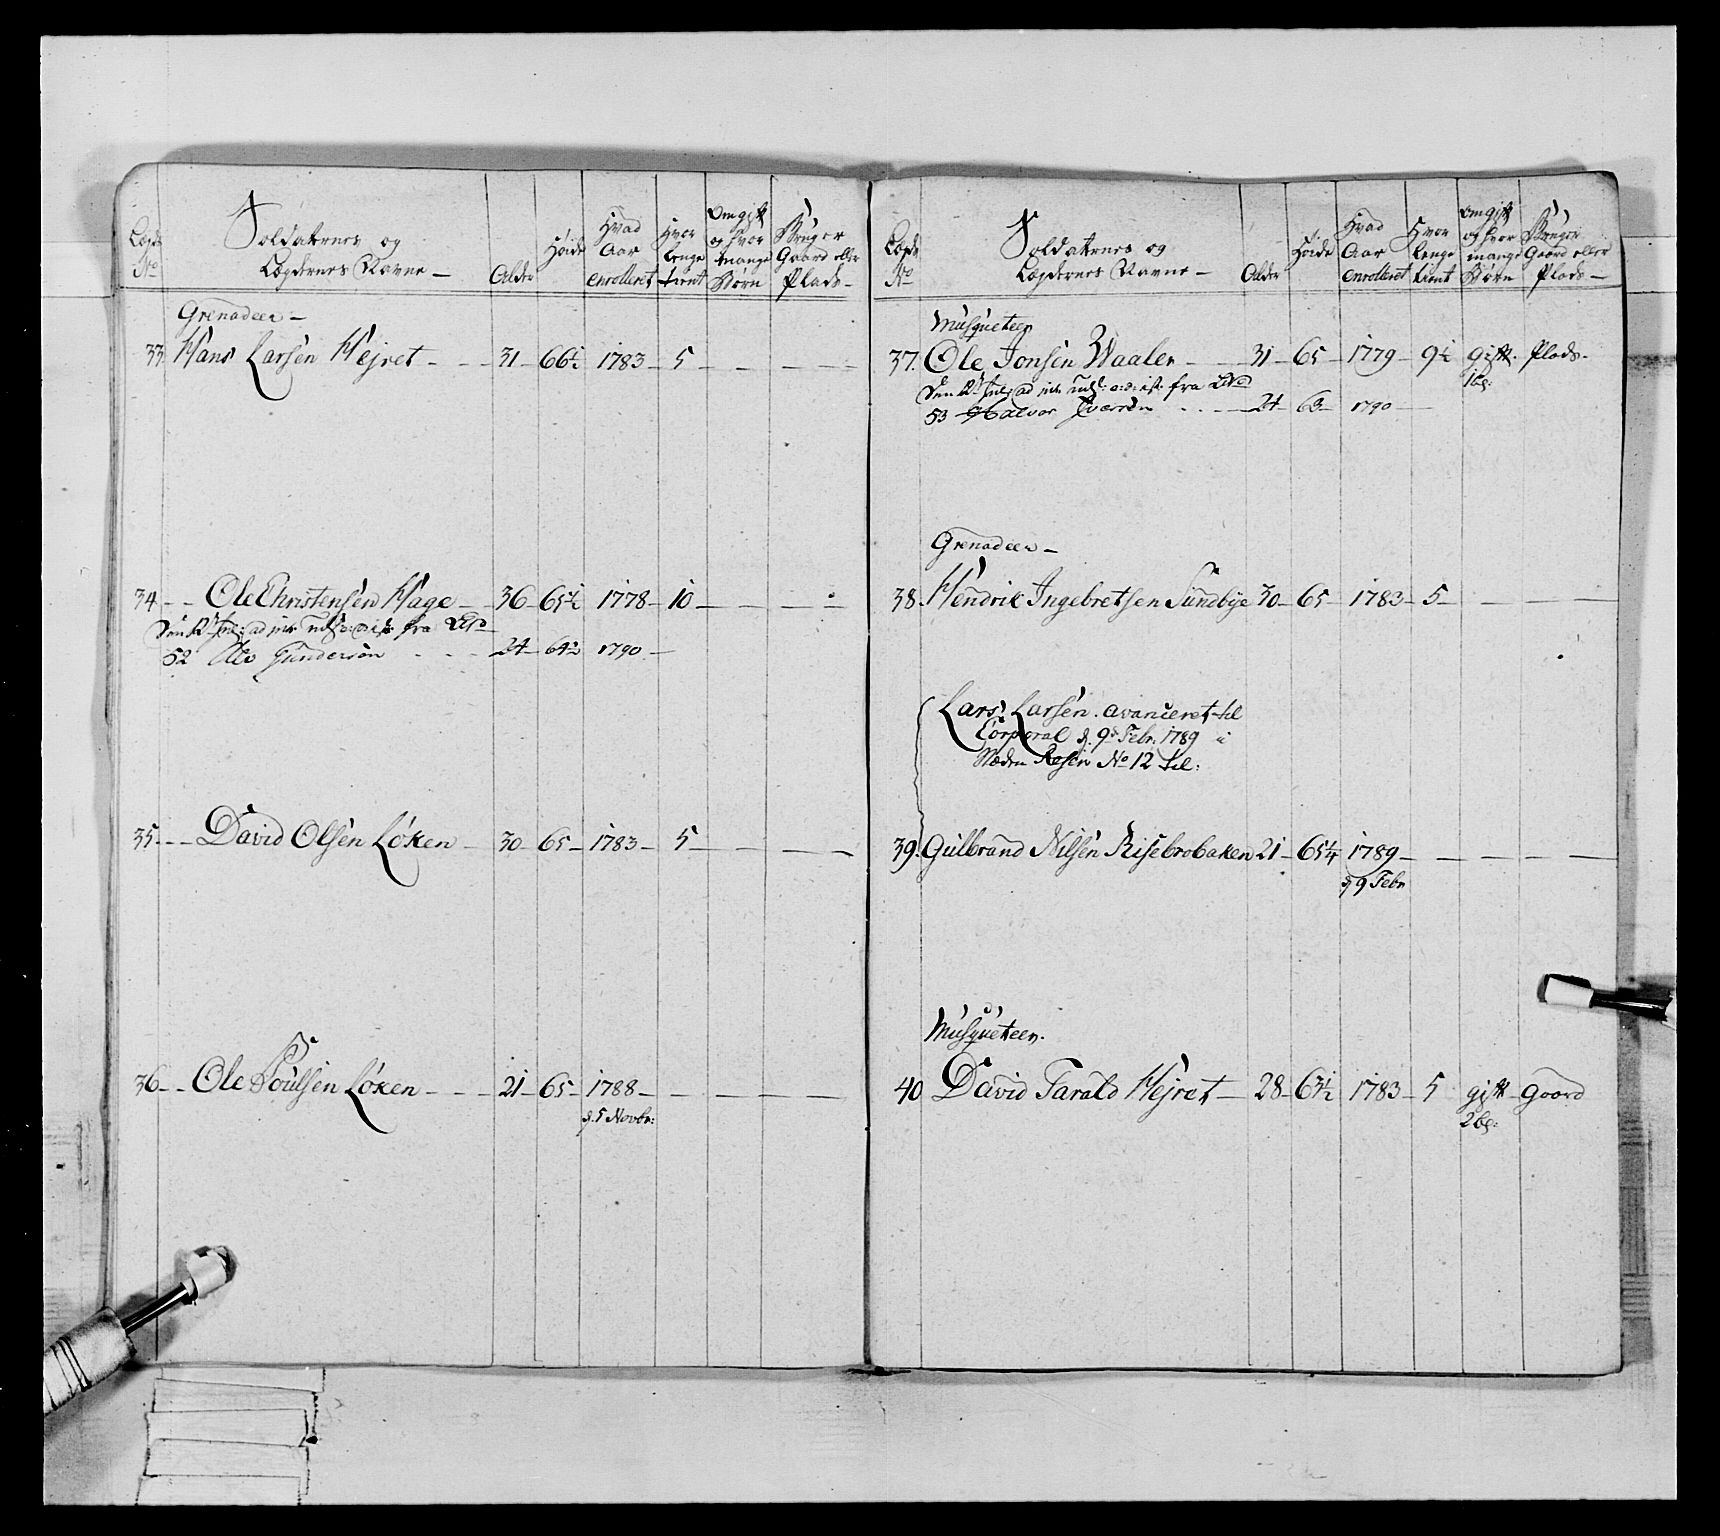 Lægds No
Soldaternes og
Lægdernes Navne
Alder
Høide
Hvad Aar enrolleret
Hvor lenge tient
Om gift og hvor mange Børn
Bruger Gaard eller Plads
Grenadeer
33. Hans Larsen Hejret 31 66½ 1783 5
34 Ole Christensen Hage 36 65½ 1778 10
fra
52 Ole Gundersøn 24 64½ 1790
35 David Olsen Løken 30 65 1783 5
36 Ole Poulsen Løken 21 65 1788
d. 5 Novbr:
Lægds No
Soldaternes og
Lægdernes Navne
Alder
Høide
Hvad Aar enrolleret
Hvor lenge tient
Om gift og hvor mange Børn
Bruger Gaard eller Plads
Musqueteer
37. Ole Jonsen Waaler 31 65 1779 9½ gift Plads
1 b:
fra
53 Halvor Iversøn 24 63 1790
Grenadeer
38. Hendrik Ingebretsen Sundbye 30 65 1783 5
Lars Larsen avanceret til
Corporal d. 9de Febr. 1789 i
No 12 til:
39. Gulbrand Nilsen Risebrobaken 21 65¼ 1789
d 9 Febr
Musqueteer.
40 David Tarald Hejret 28 63½ 1783 5 gift gaard
2 b: